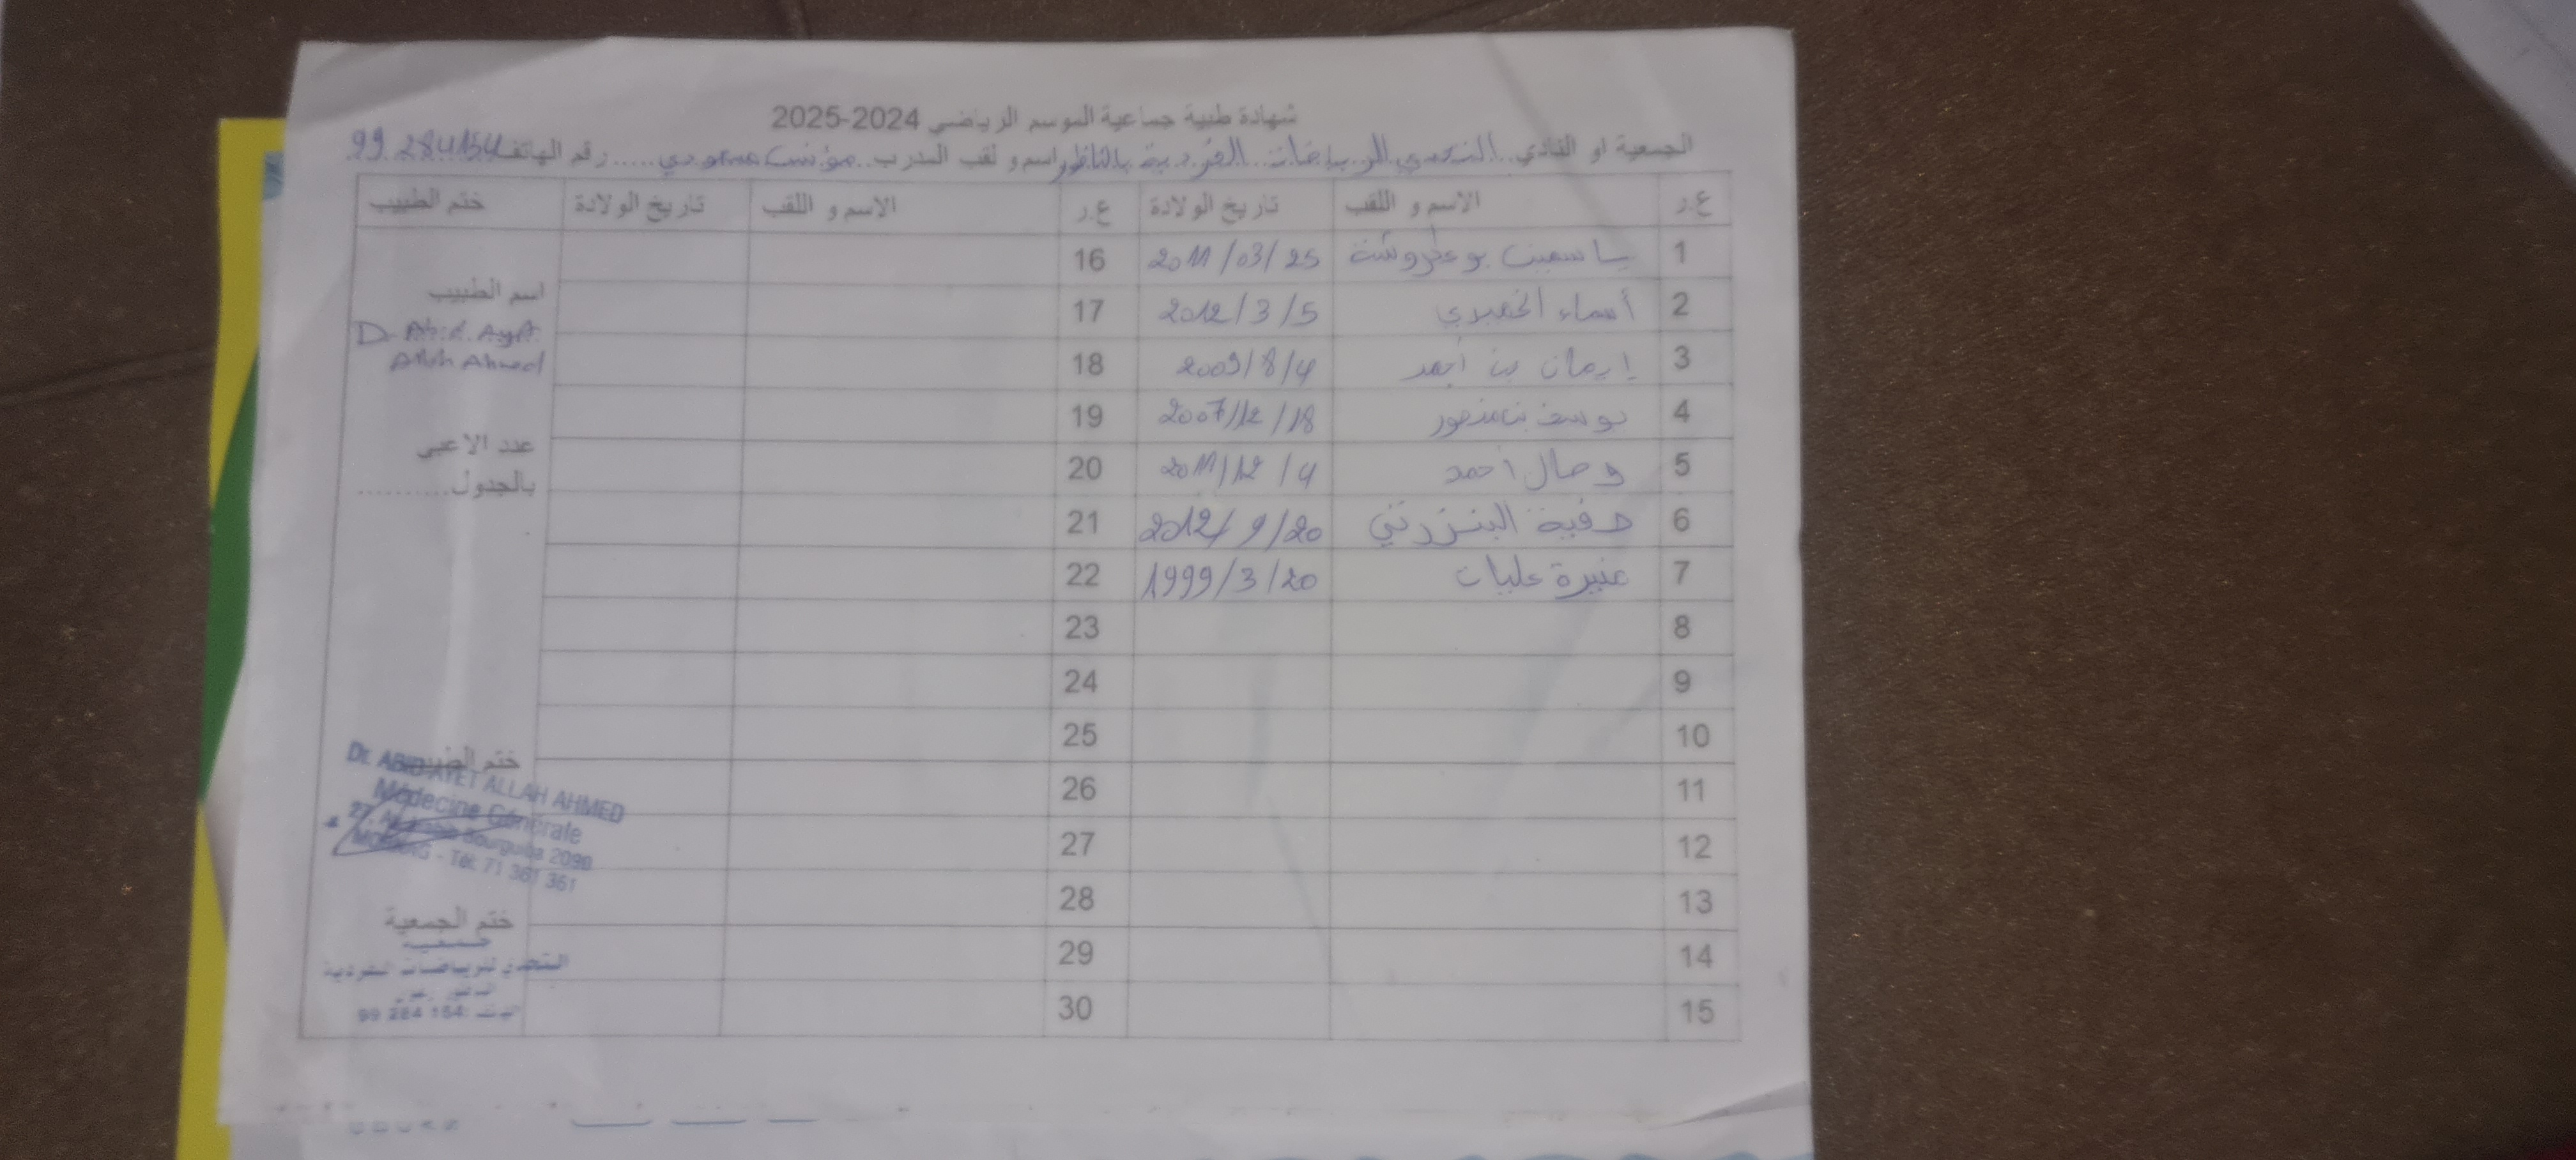 شهادة طبية جماعية الموسم الرياضي 2024-2025
الجمعية او النادي.. التحدي للرياضات الفردية بالناظور اسم و لقب المدرب.. مؤنس مسعودي..... رقم الهاتف 99 284154
ع.ر الاسم و اللقب تاريخ الولادة ع.ر الاسم و اللقب تاريخ الولادة ختم الطبيب
1 ياسمين بوعكروشة 2011/03/25 16
2 أسماء الخضيري 2012/3/5 17
3 إيمان بن أحمد 2009/8/4 18
4 يوسف بن منصور 2007/12/18 19
5 وصال أحمد 2011/12/4 20
6 صفية البنزرتي 2012/9/20 21
7 منيرة عليات 1999/3/20 22
8 23
9 24
10 25
11 26
12 27
13 28
14 29
15 30
اسم الطبيب
D. Abid Ayet
Allah Ahmed
عدد الاعبي
بالجدول..........
ختم الطبيب
Dr. ABID AYET ALLAH AHMED
Médecine Générale
27, Av. Bourguiba 2090
MORNAG - Tél: 71 361 361
ختم الجمعية
جمعية
التحدي للرياضات الفردية
99 284 154